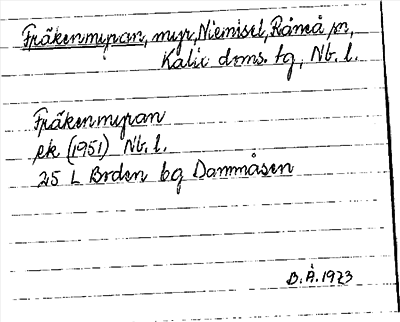 Fräkenmyran, myr, Niemisel, Råneå sn,
Kalix doms. tg, Nb. l.
Fräkenmyran
ek (1951) Nb. l.
25 L Boden bg Dammåsen
B. Å. 1973